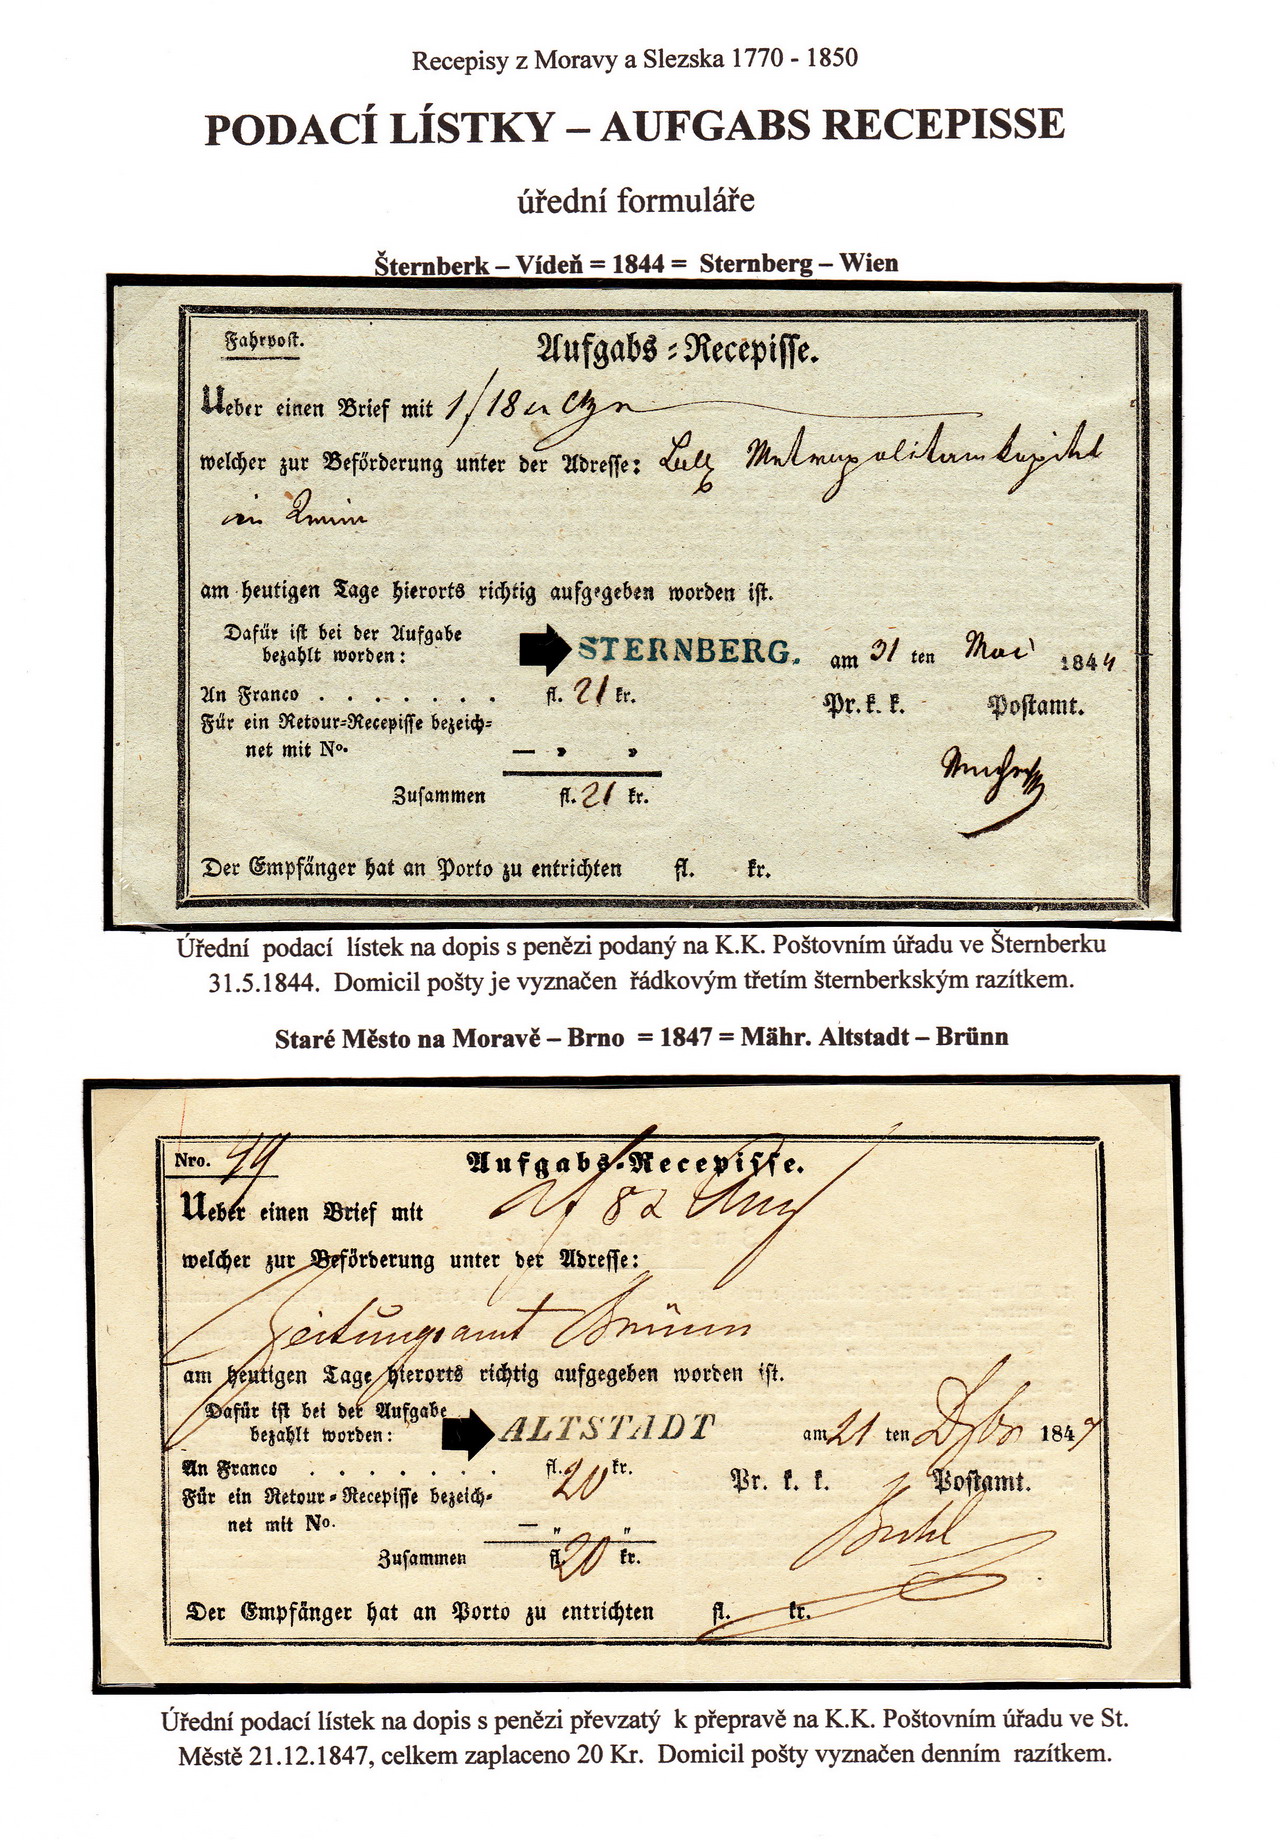 Recepisy z Moravy a Slezska 1770 - 1850
PODACÍ LÍSTKY – AUFGABS RECEPISSE
úřední formuláře
Šternberk – Vídeň = 1844 = Sternberg – Wien
Fahrpost.
Aufgabs=Recepisse.
Ueber einen Brief mit 1/18
welcher zur Beförderung unter der Adresse: Metropolitankapitel
in
am heutigen Tage hierorts richtig aufgegeben worden ist.
Dafür ist bei der Aufgabe
bezahlt worden:
STERNBERG. am 31 ten Mai 1844
An Franco . . . . . . . fl. 21 kr.
Pr. k. k. Postamt.
Für ein Retour=Recepisse bezeich=
net mit No. — „ „
Zusammen fl. 21 kr.
Der Empfänger hat an Porto zu entrichten fl. kr.
Úřední podací lístek na dopis s penězi podaný na K.K. Poštovním úřadu ve Šternberku
31.5.1844. Domicil pošty je vyznačen řádkovým třetím šternberkským razítkem.
Staré Město na Moravě – Brno = 1847 = Mähr. Altstadt – Brünn
Nro. 49
Aufgabs=Recepisse.
Ueber einen Brief mit
welcher zur Beförderung unter der Adresse:
Zeitungsamt Brünn
am heutigen Tage hierorts richtig aufgegeben worden ist.
Dafür ist bei der Aufgabe
bezahlt worden:
ALTSTADT am 21 ten Dzbr 1847
An Franco . . . . . . . fl. 20 kr.
Pr. k. k. Postamt.
Für ein Retour=Recepisse bezeich=
net mit No. — " "
Zusammen fl. 20 kr.
Der Empfänger hat an Porto zu entrichten fl. kr.
Úřední podací lístek na dopis s penězi převzatý k přepravě na K.K. Poštovním úřadu ve St.
Městě 21.12.1847, celkem zaplaceno 20 Kr. Domicil pošty vyznačen denním razítkem.